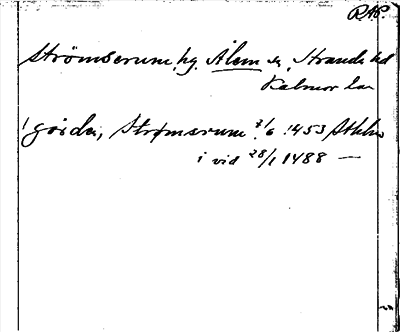 RAP.
Strömserum, hg. Ålem sn, Stranda hd
Kalmar län
i gårdh, Strømserum 7/6 1453 Sthlm
i vid 28/1 1488 —